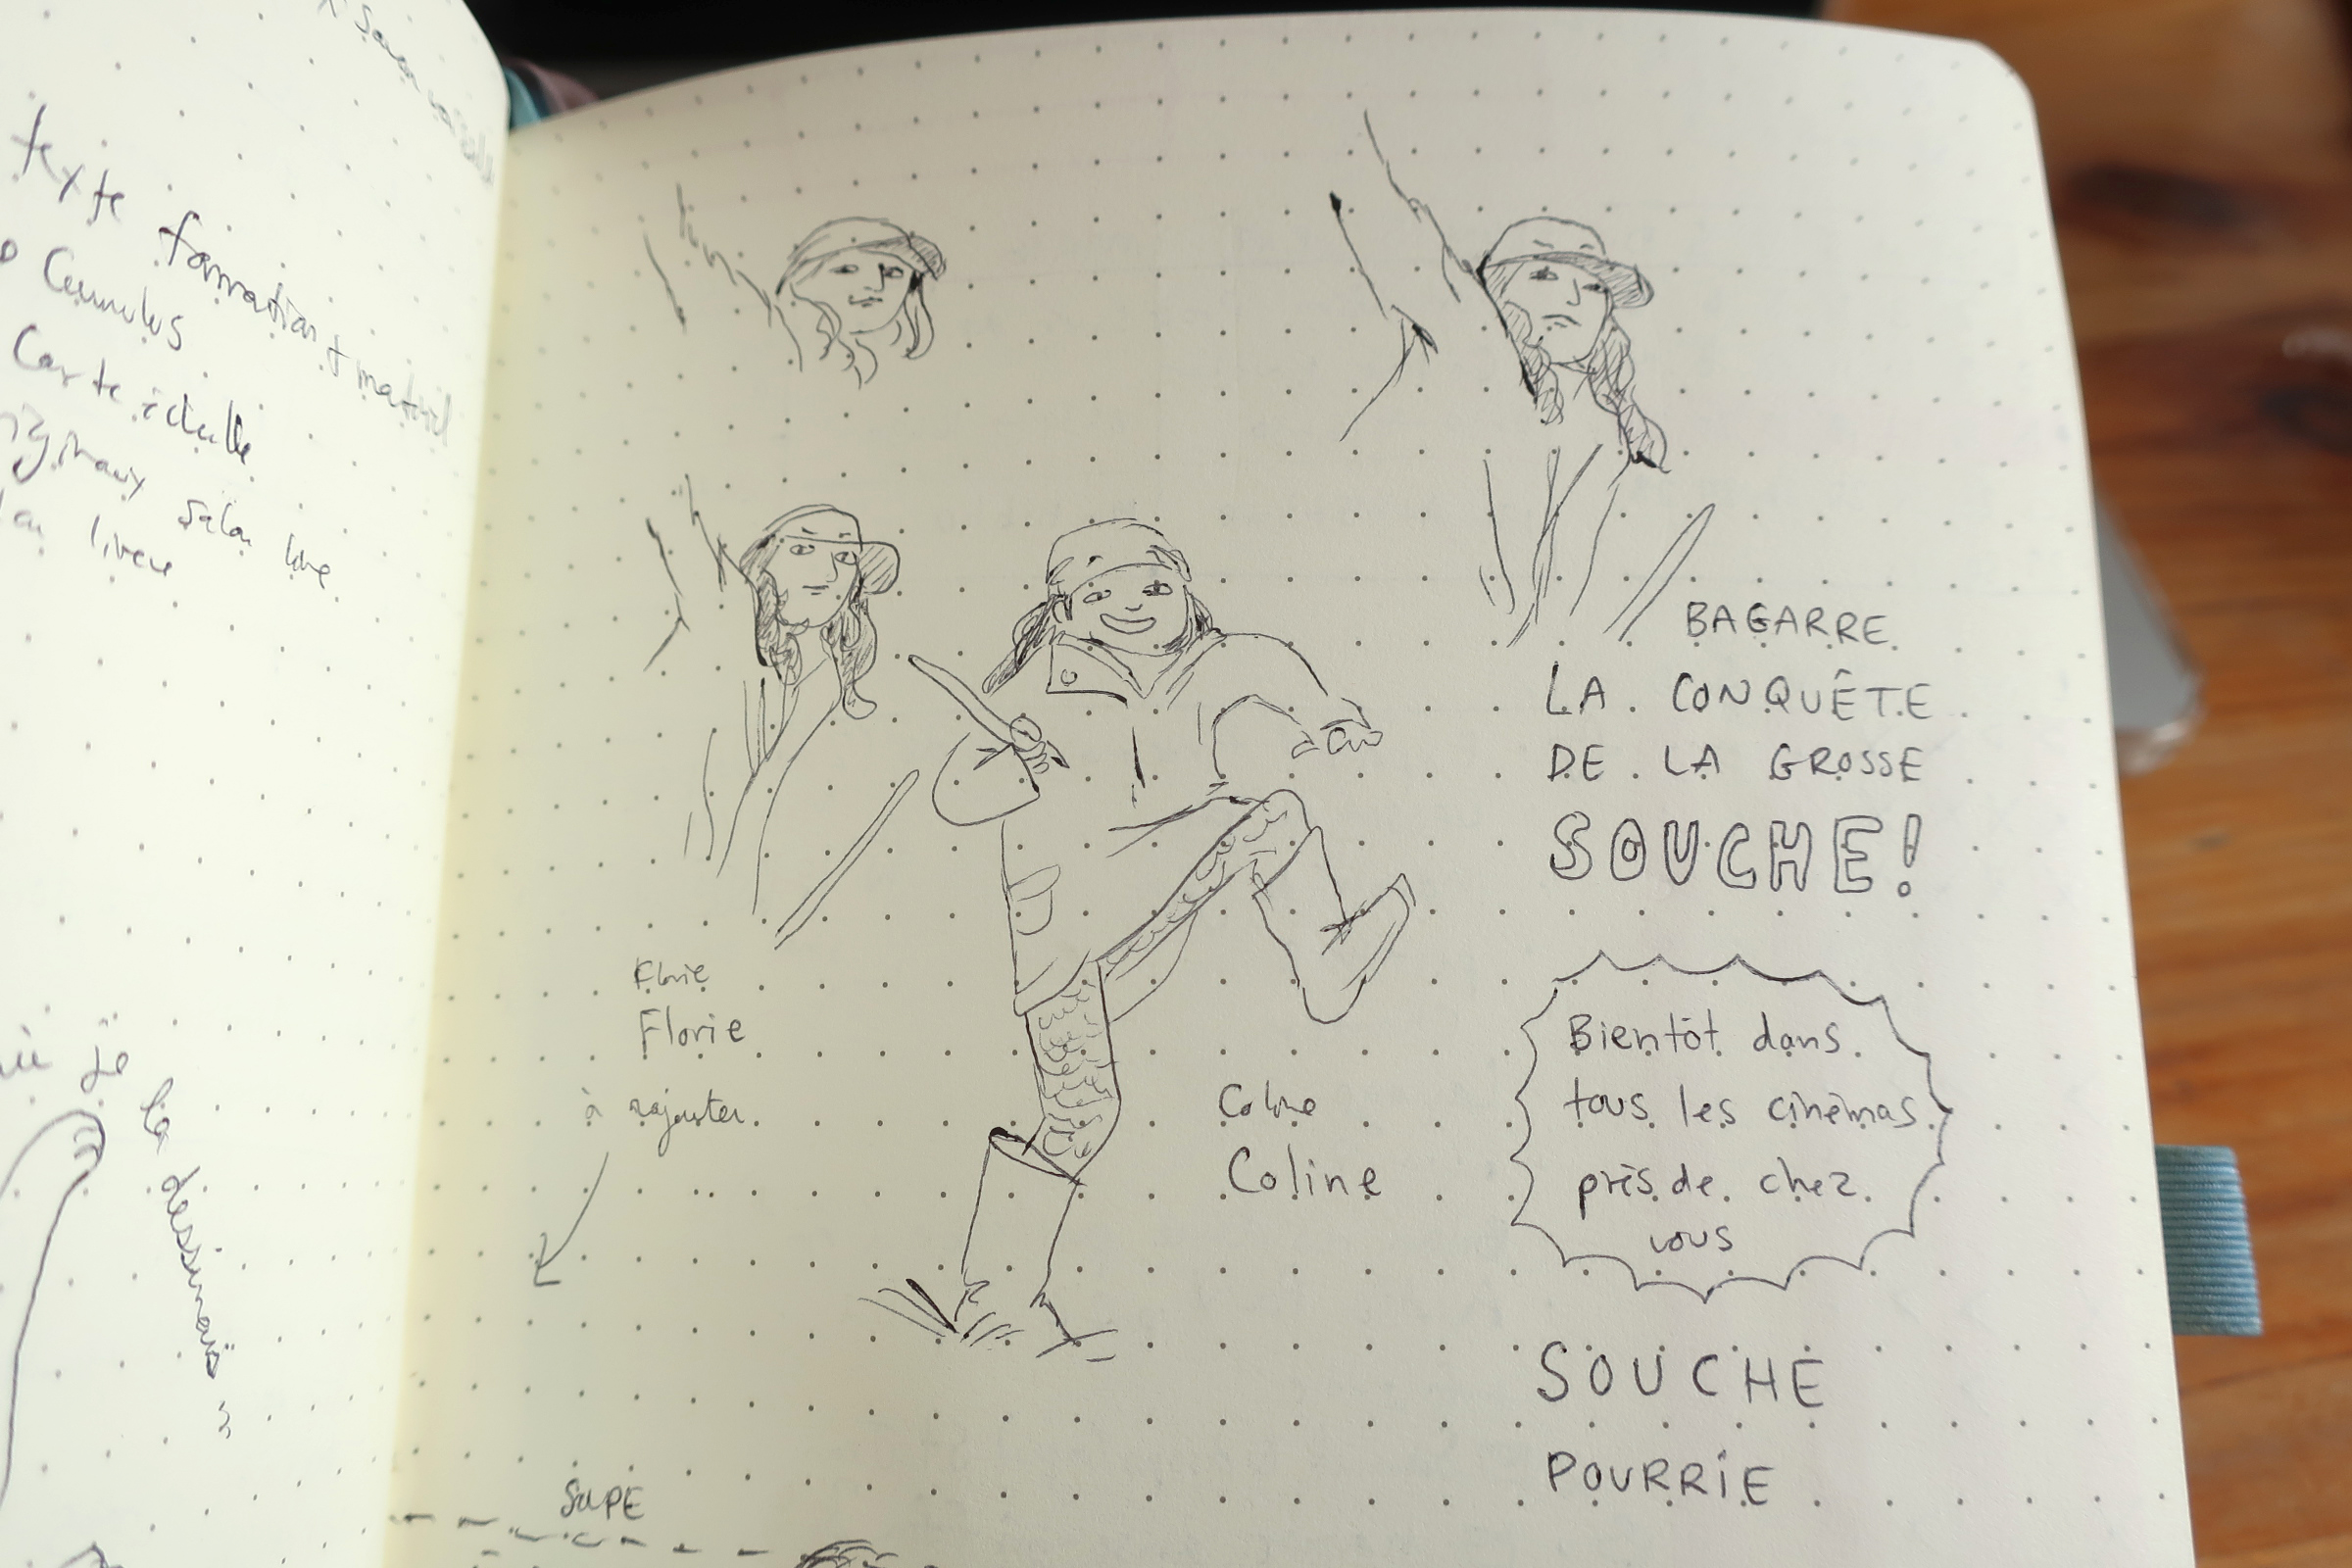 texte formation + matériel
Cumulus
Carte idée
originaux salon livre
livre
je
la
dessinais
BAGARRE
LA CONQUÊTE
DE LA GROSSE
SOUCHE!
Florie
Florie
à rajouter
Coline
Coline
Bientôt dans
tous les cinémas
près de chez
vous
SOUCHE
POURRIE
SUPE